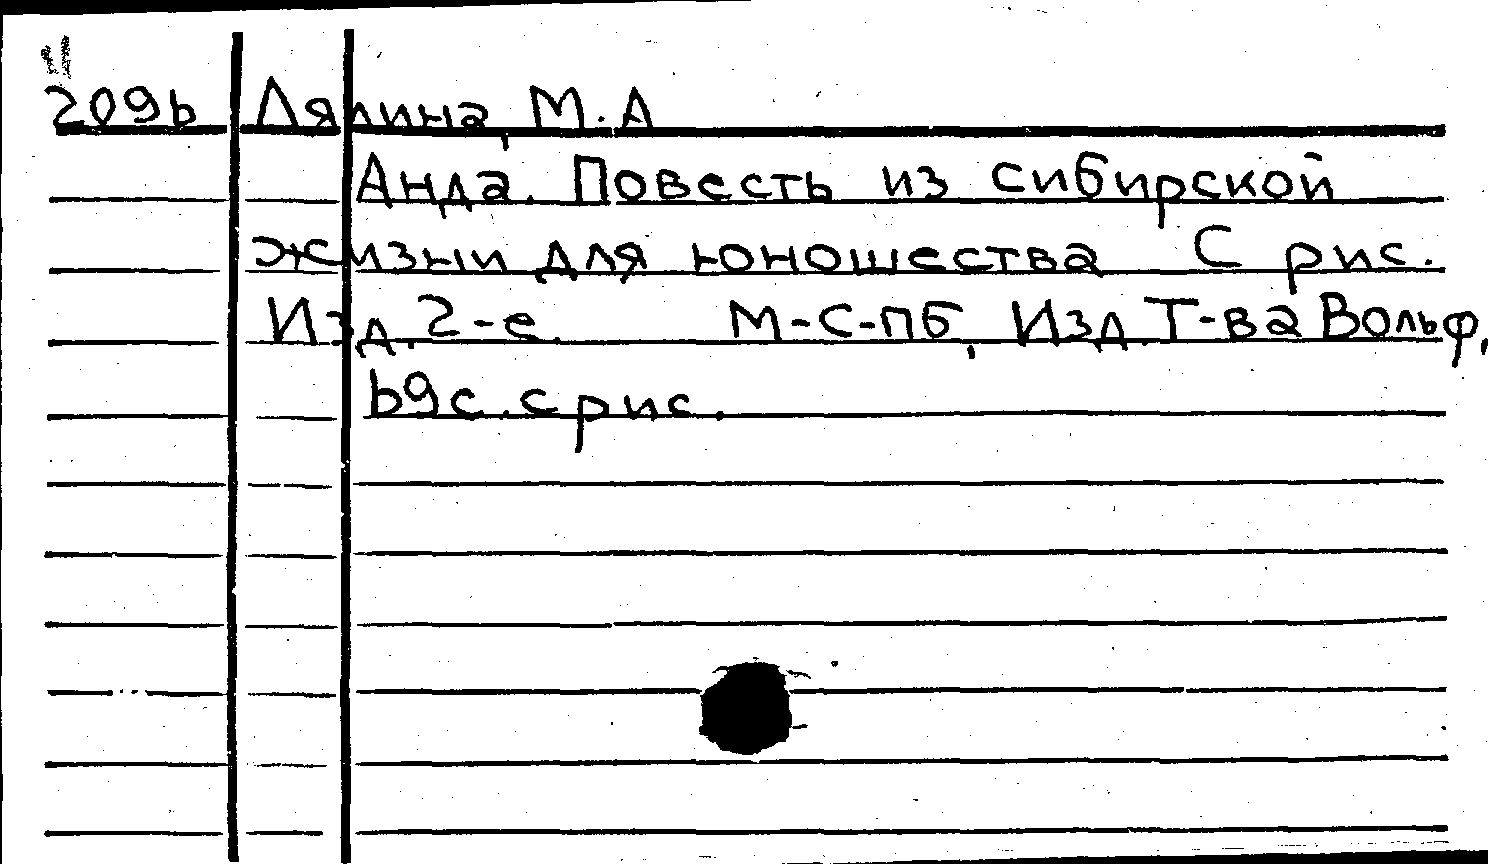 2096 Лялина, М.А
Анда. Повесть из сибирской
жизни для юношества С рис.
Изд. 2-е. М-С-пб, Изд. Т-ва Вольф,
69с. с рис.